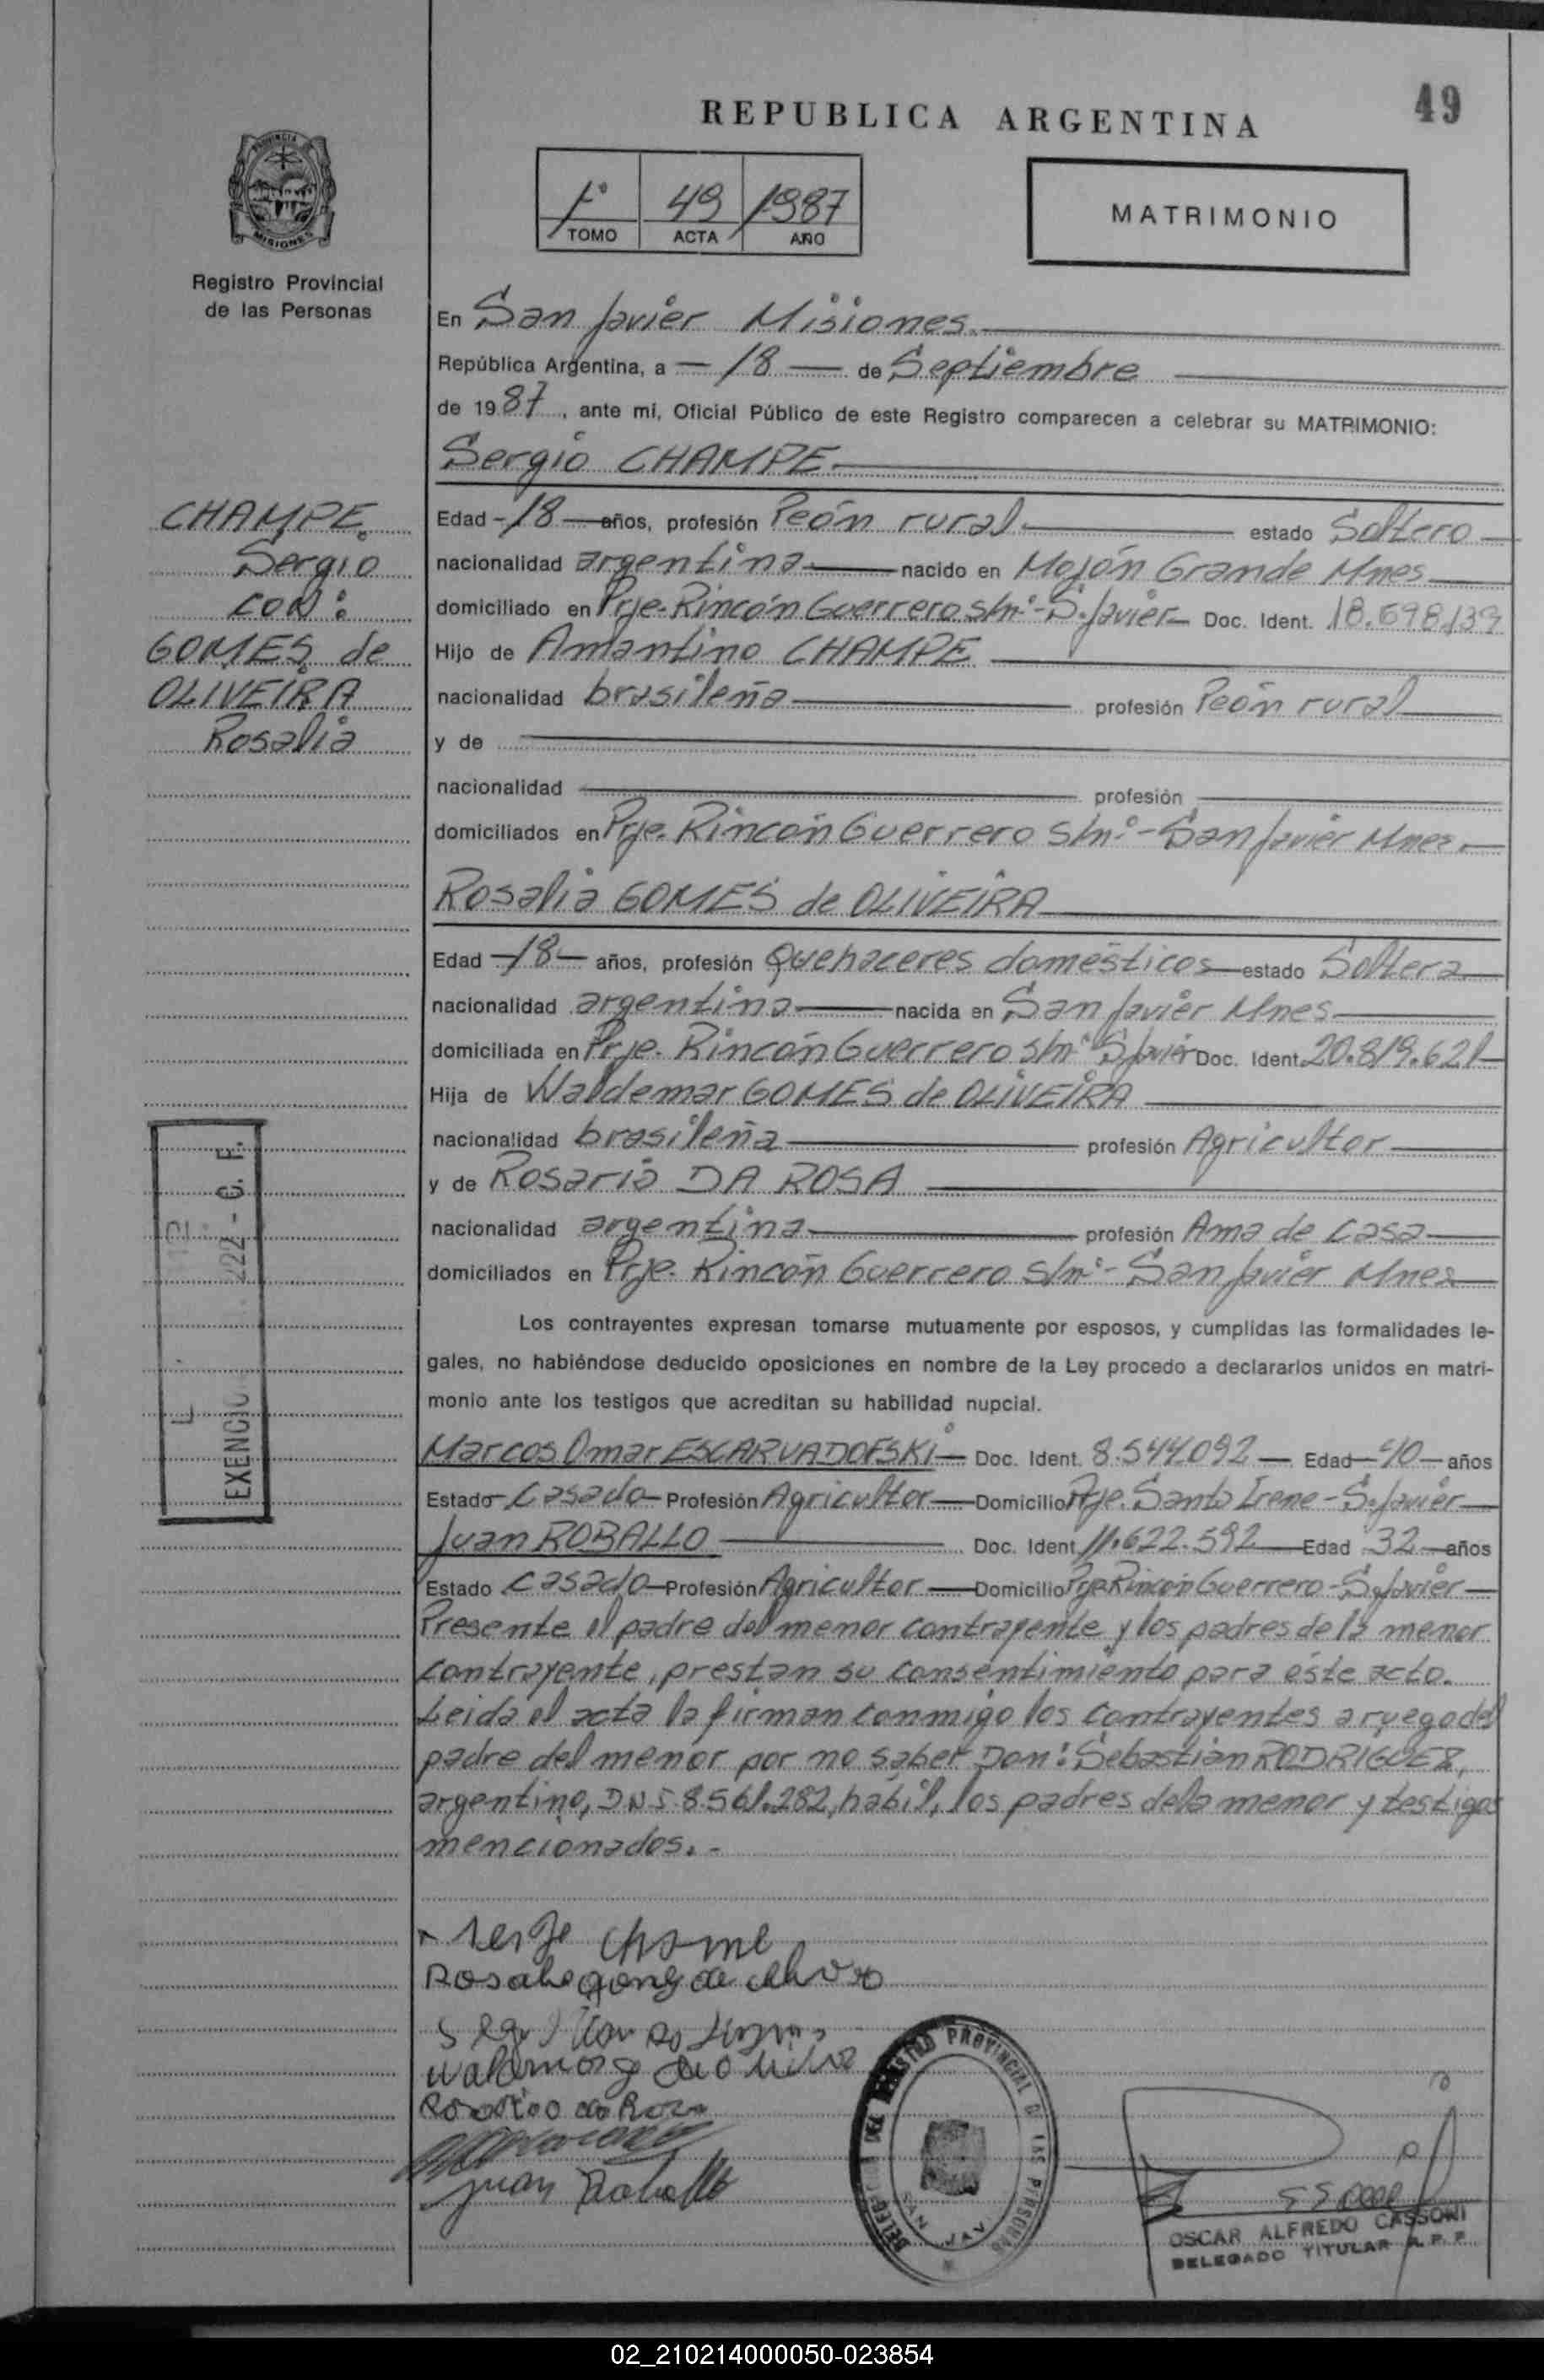 49
REPUBLICA ARGENTINA
PROVINCIA
MISIONES
Registro Provincial
de las Personas
1º 49 1987
TOMO ACTA AÑO
MATRIMONIO
En San Javier Misiones.
República Argentina, a - 18 - de Septiembre
de 1987, ante mi, Oficial Público de este Registro comparecen a celebrar su MATRIMONIO:
Sergio CHAMPE
CHAMPE
Sergio
con:
GOMES de
OLIVEIRA
Rosalia
Edad -18- años, profesión Peón rural estado Soltero
nacionalidad argentina nacido en Mojón Grande Mnes
domiciliado en Prje. Rincón Guerrero s/nº - S. Javier Doc. Ident. 18.698.139
Hijo de Amantino CHAMPE
nacionalidad brasileña profesión Peón rural
y de
nacionalidad profesión
domiciliados en Prje. Rincón Guerrero s/nº - San Javier Mnes.
Rosalia GOMES de OLIVEIRA
Edad -18- años, profesión Quehaceres domésticos estado Soltera
nacionalidad argentina nacida en San Javier Mnes
domiciliada en Prje. Rincón Guerrero s/nº S. Javier Doc. Ident. 20.819.621
Hija de Waldemar GOMES de OLIVEIRA
nacionalidad brasileña profesión Agricultor
y de Rosario DA ROSA
nacionalidad argentina profesión Ama de casa
domiciliados en Prje. Rincón Guerrero s/nº - San Javier Mnes
EXENCIO 222 - C. F.
Los contrayentes expresan tomarse mutuamente por esposos, y cumplidas las formalidades le-
gales, no habiéndose deducido oposiciones en nombre de la Ley procedo a declararlos unidos en matri-
monio ante los testigos que acreditan su habilidad nupcial.
Marcos Omar ESCARVADOFSKI Doc. Ident. 8.544.092 Edad 40 años
Estado Casado Profesión Agricultor Domicilio Pje. Santa Irene - S. Javier
Juan ROBALLO Doc. Ident. 11.622.592 Edad 32 años
Estado casado Profesión Agricultor Domicilio Prje Rincón Guerrero - S. Javier
Presente el padre del menor contrayente y los padres de la menor
contrayente, prestan su consentimiento para éste acto.
Leida el acta la firman conmigo los contrayentes a ruego del
padre del menor por no saber Don: Sebastián RODRIGUEZ,
argentino, DNI 8.561.282, habil, los padres de la menor y testigos
mencionados. -
Juan Roballo
DELEG DEL REGISTRO PROVINCIAL D LAS PERSONAS
SAN JAV
OSCAR ALFREDO CASSONI
DELEGADO TITULAR R. P. P.
02_210214000050-023854